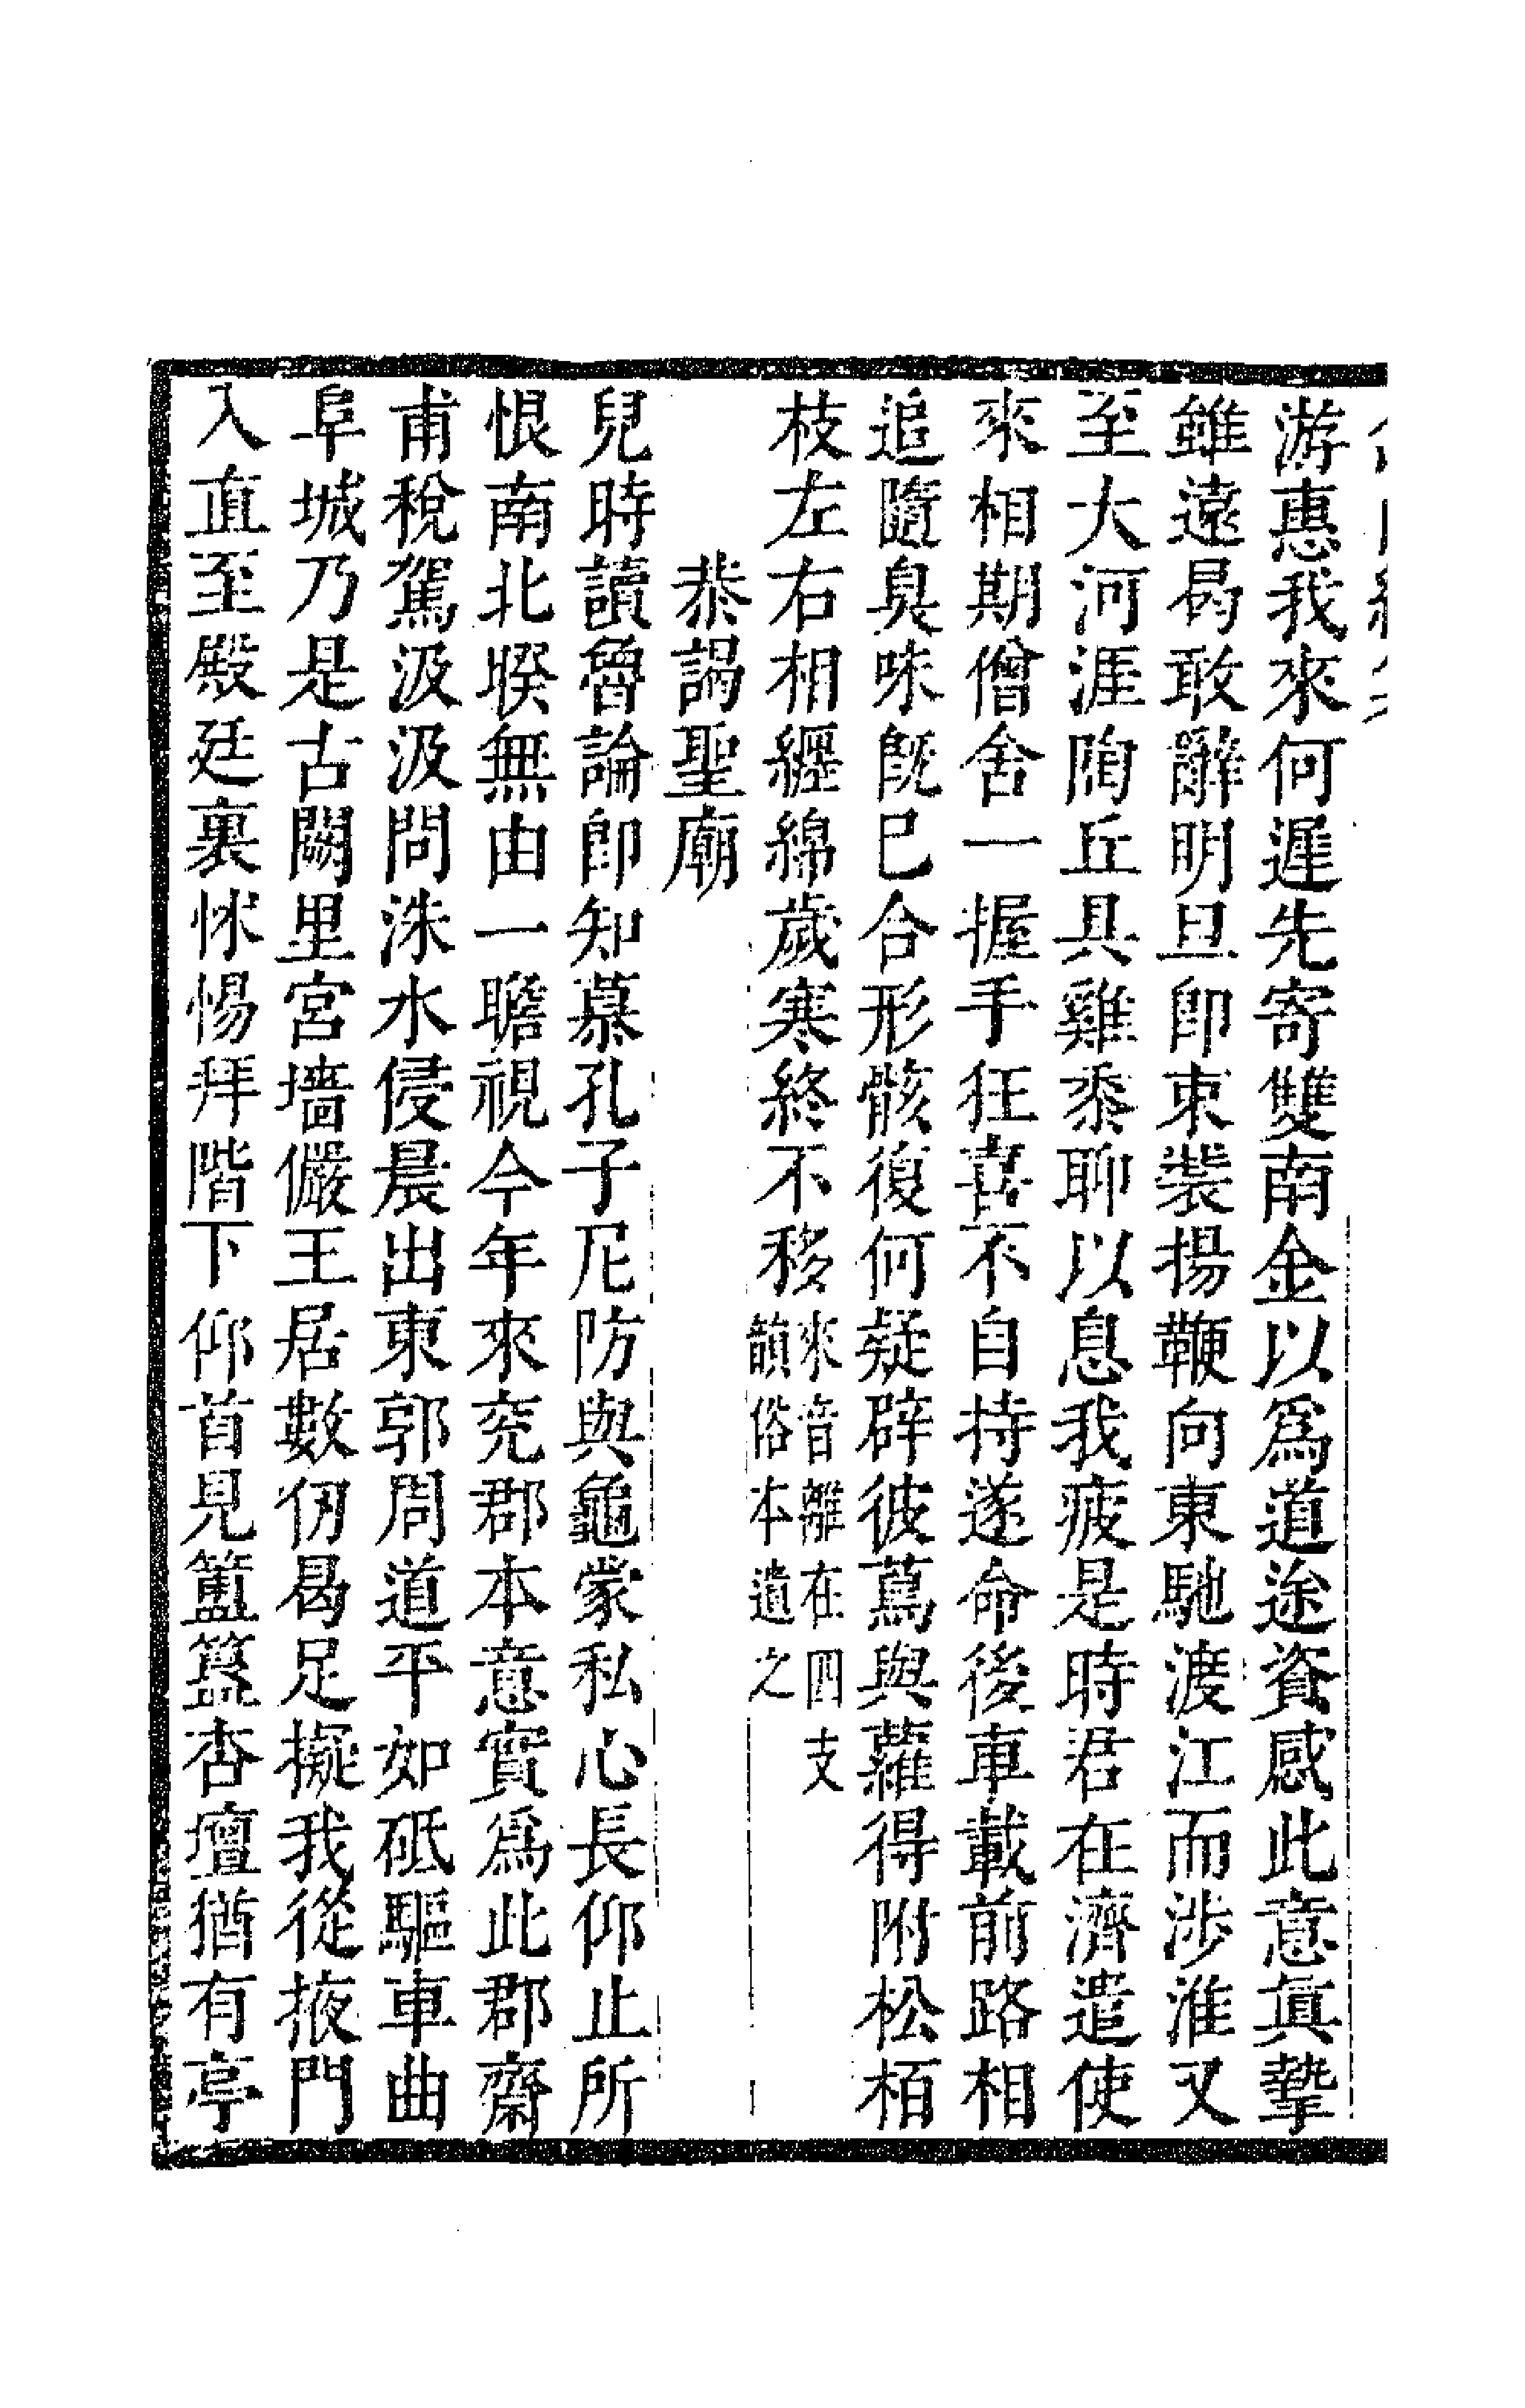 游惠我來何遲先寄雙南金以爲道途資感此意眞摯
雖遠曷敢辭明旦卽束裝揚鞭向東馳渡江而涉淮又
至大河涯陶丘具雞黍聊以息我疲是時君在濟遣使
來相期僧舍一握手狂喜不自持遂命後車載前路相
追隨臭味旣已合形骸復何疑辟彼蔦與蘿得附松栢
枝左右相纏綿歲寒終不移來音離在四支韻俗本遺之
恭謁聖廟
兒時讀魯論卽知慕孔子尼防與龜蒙私心長仰止所
恨南北暌無由一瞻視今年來兖郡本意實爲此郡齋
甫稅駕汲汲問洙水侵晨出東郭周道平如砥驅車曲
阜城乃是古闕里宮墻儼王居數仞曷足擬我從掖門
入直至殿廷裏怵惕拜階下仰首見簠簋杏壇猶有亭